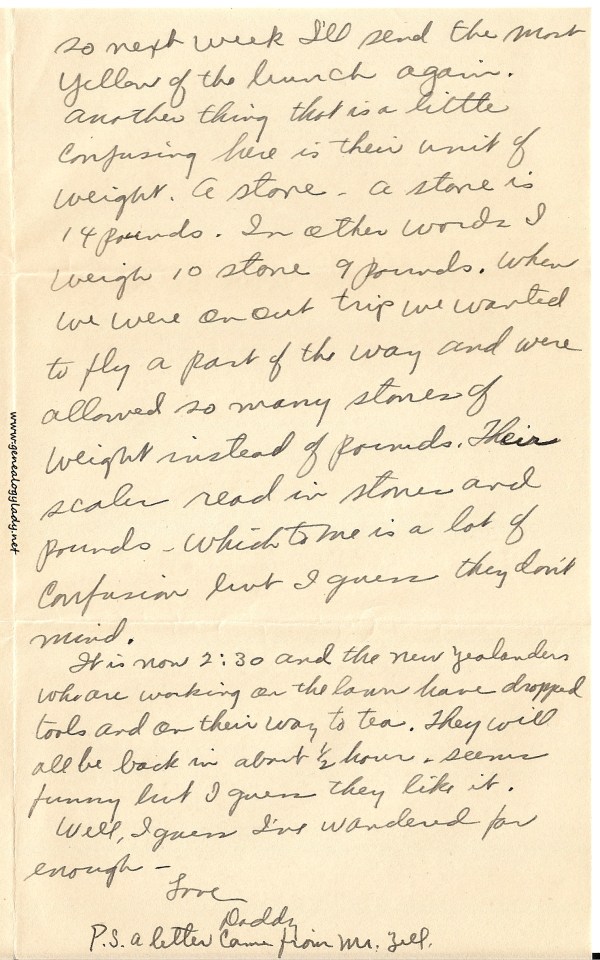 so next week I'll send the most
yellow of the bunch again.
Another thing that is a little
confusing here is their unit of
weight. A stone - A stone is
14 pounds. In other words I
weigh 10 stone 9 pounds. When
we were on out trip we wanted
to fly a part of the way and were
allowed so many stones of
weight instead of pounds. Their
scales read in stones and
pounds - which to me is a lot of
confusion but I guess they don't
mind.
It is now 2:30 and the new Zealanders
who are working on the lawn have dropped
tools and on their way to tea. They will
all be back in about 1/2 hour - seems
funny but I guess they like it.
Well, I guess I've wandered far
enough -
Love
Daddy
P.S. a letter came from Mr. Zell.
www.genealogylady.net